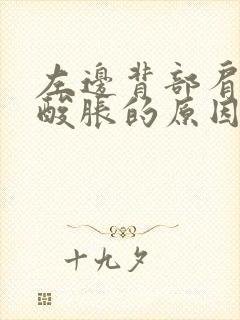 左邊背部肩
酸脹的原因
十九夕